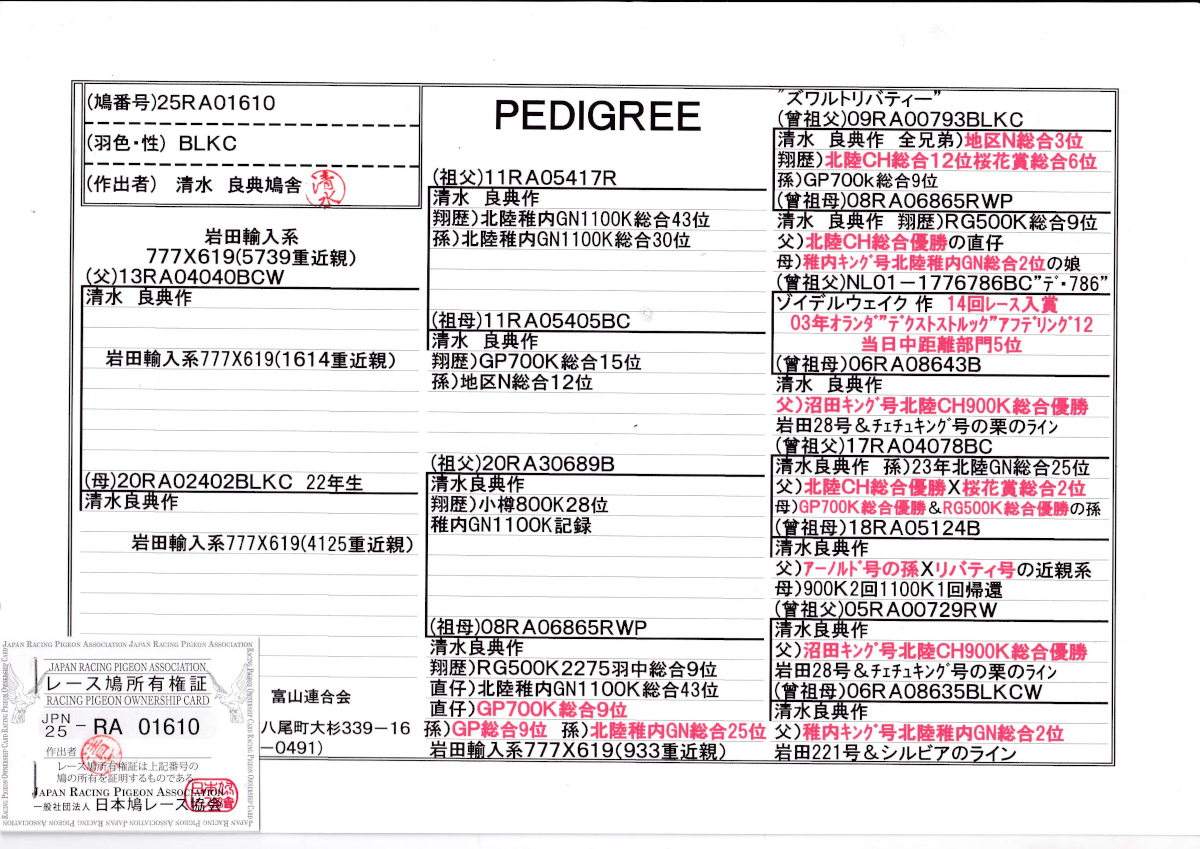 (鳩番号)25RA01610
(羽色・性) BLKC
(作出者) 清水 良典鳩舎
清水
岩田輸入系
777X619(5739重近親)
(父)13RA04040BCW
清水 良典作
岩田輸入系777X619(1614重近親)
(母)20RA02402BLKC 22年生
清水良典作
岩田輸入系777X619(4125重近親)
富山連合会
八尾町大杉339-16
-0491)
PEDIGREE
(祖父)11RA05417R
清水 良典作
翔歴)北陸稚内GN1100K総合43位
孫)北陸稚内GN1100K総合30位
(祖母)11RA05405BC
清水 良典作
翔歴)GP700K総合15位
孫)地区N総合12位
(祖父)20RA30689B
清水良典作
翔歴)小樽800K28位
稚内GN1100K記録
(祖母)08RA06865RWP
清水良典作
翔歴)RG500K2275羽中総合9位
直仔)北陸稚内GN1100K総合43位
直仔)GP700K総合9位
孫)GP総合9位 孫)北陸稚内GN総合25位
岩田輸入系777X619(933重近親)
"ズワルトリバティー"
(曾祖父)09RA00793BLKC
清水 良典作 全兄弟)地区N総合3位
翔歴)北陸CH総合12位桜花賞総合6位
孫)GP700k総合9位
(曾祖母)08RA06865RWP
清水 良典作 翔歴)RG500K総合9位
父)北陸CH総合優勝の直仔
母)稚内キング号北陸稚内GN総合2位の娘
(曾祖父)NL01-1776786BC"デ・786"
ゾイデルウェイク 作 14回レース入賞
03年オランダ"デクストストルック"アフデリング12
当日中距離部門5位
(曾祖母)06RA08643B
清水 良典作
父)沼田キング号北陸CH900K総合優勝
岩田28号&チェチュキング号の栗のライン
(曾祖父)17RA04078BC
清水良典作 孫)23年北陸GN総合25位
父)北陸CH総合優勝X桜花賞総合2位
母)GP700K総合優勝&RG500K総合優勝の孫
(曾祖母)18RA05124B
清水良典作
父)アーノルド号の孫Xリバティ号の近親系
母)900K2回1100K1回帰還
(曾祖父)05RA00729RW
清水良典作
父)沼田キング号北陸CH900K総合優勝
岩田28号&チェチュキング号の栗のライン
(曾祖母)06RA08635BLKCW
清水良典作
父)稚内キング号北陸稚内GN総合2位
岩田221号&シルビアのライン
JAPAN RACING PIGEON ASSOCIATION JAPAN RACING PIGEON ASSOCIATION
JAPAN RACING PIGEON ASSOCIATION
レース鳩所有権証
RACING PIGEON OWNERSHIP CARD
JPN
25 - RA 01610
作出者
レース鳩所有権証は上記番号の
鳩の所有を証明するものである。
JAPAN RACING PIGEON ASSOCIATION
一般社団法人 日本鳩レース協会